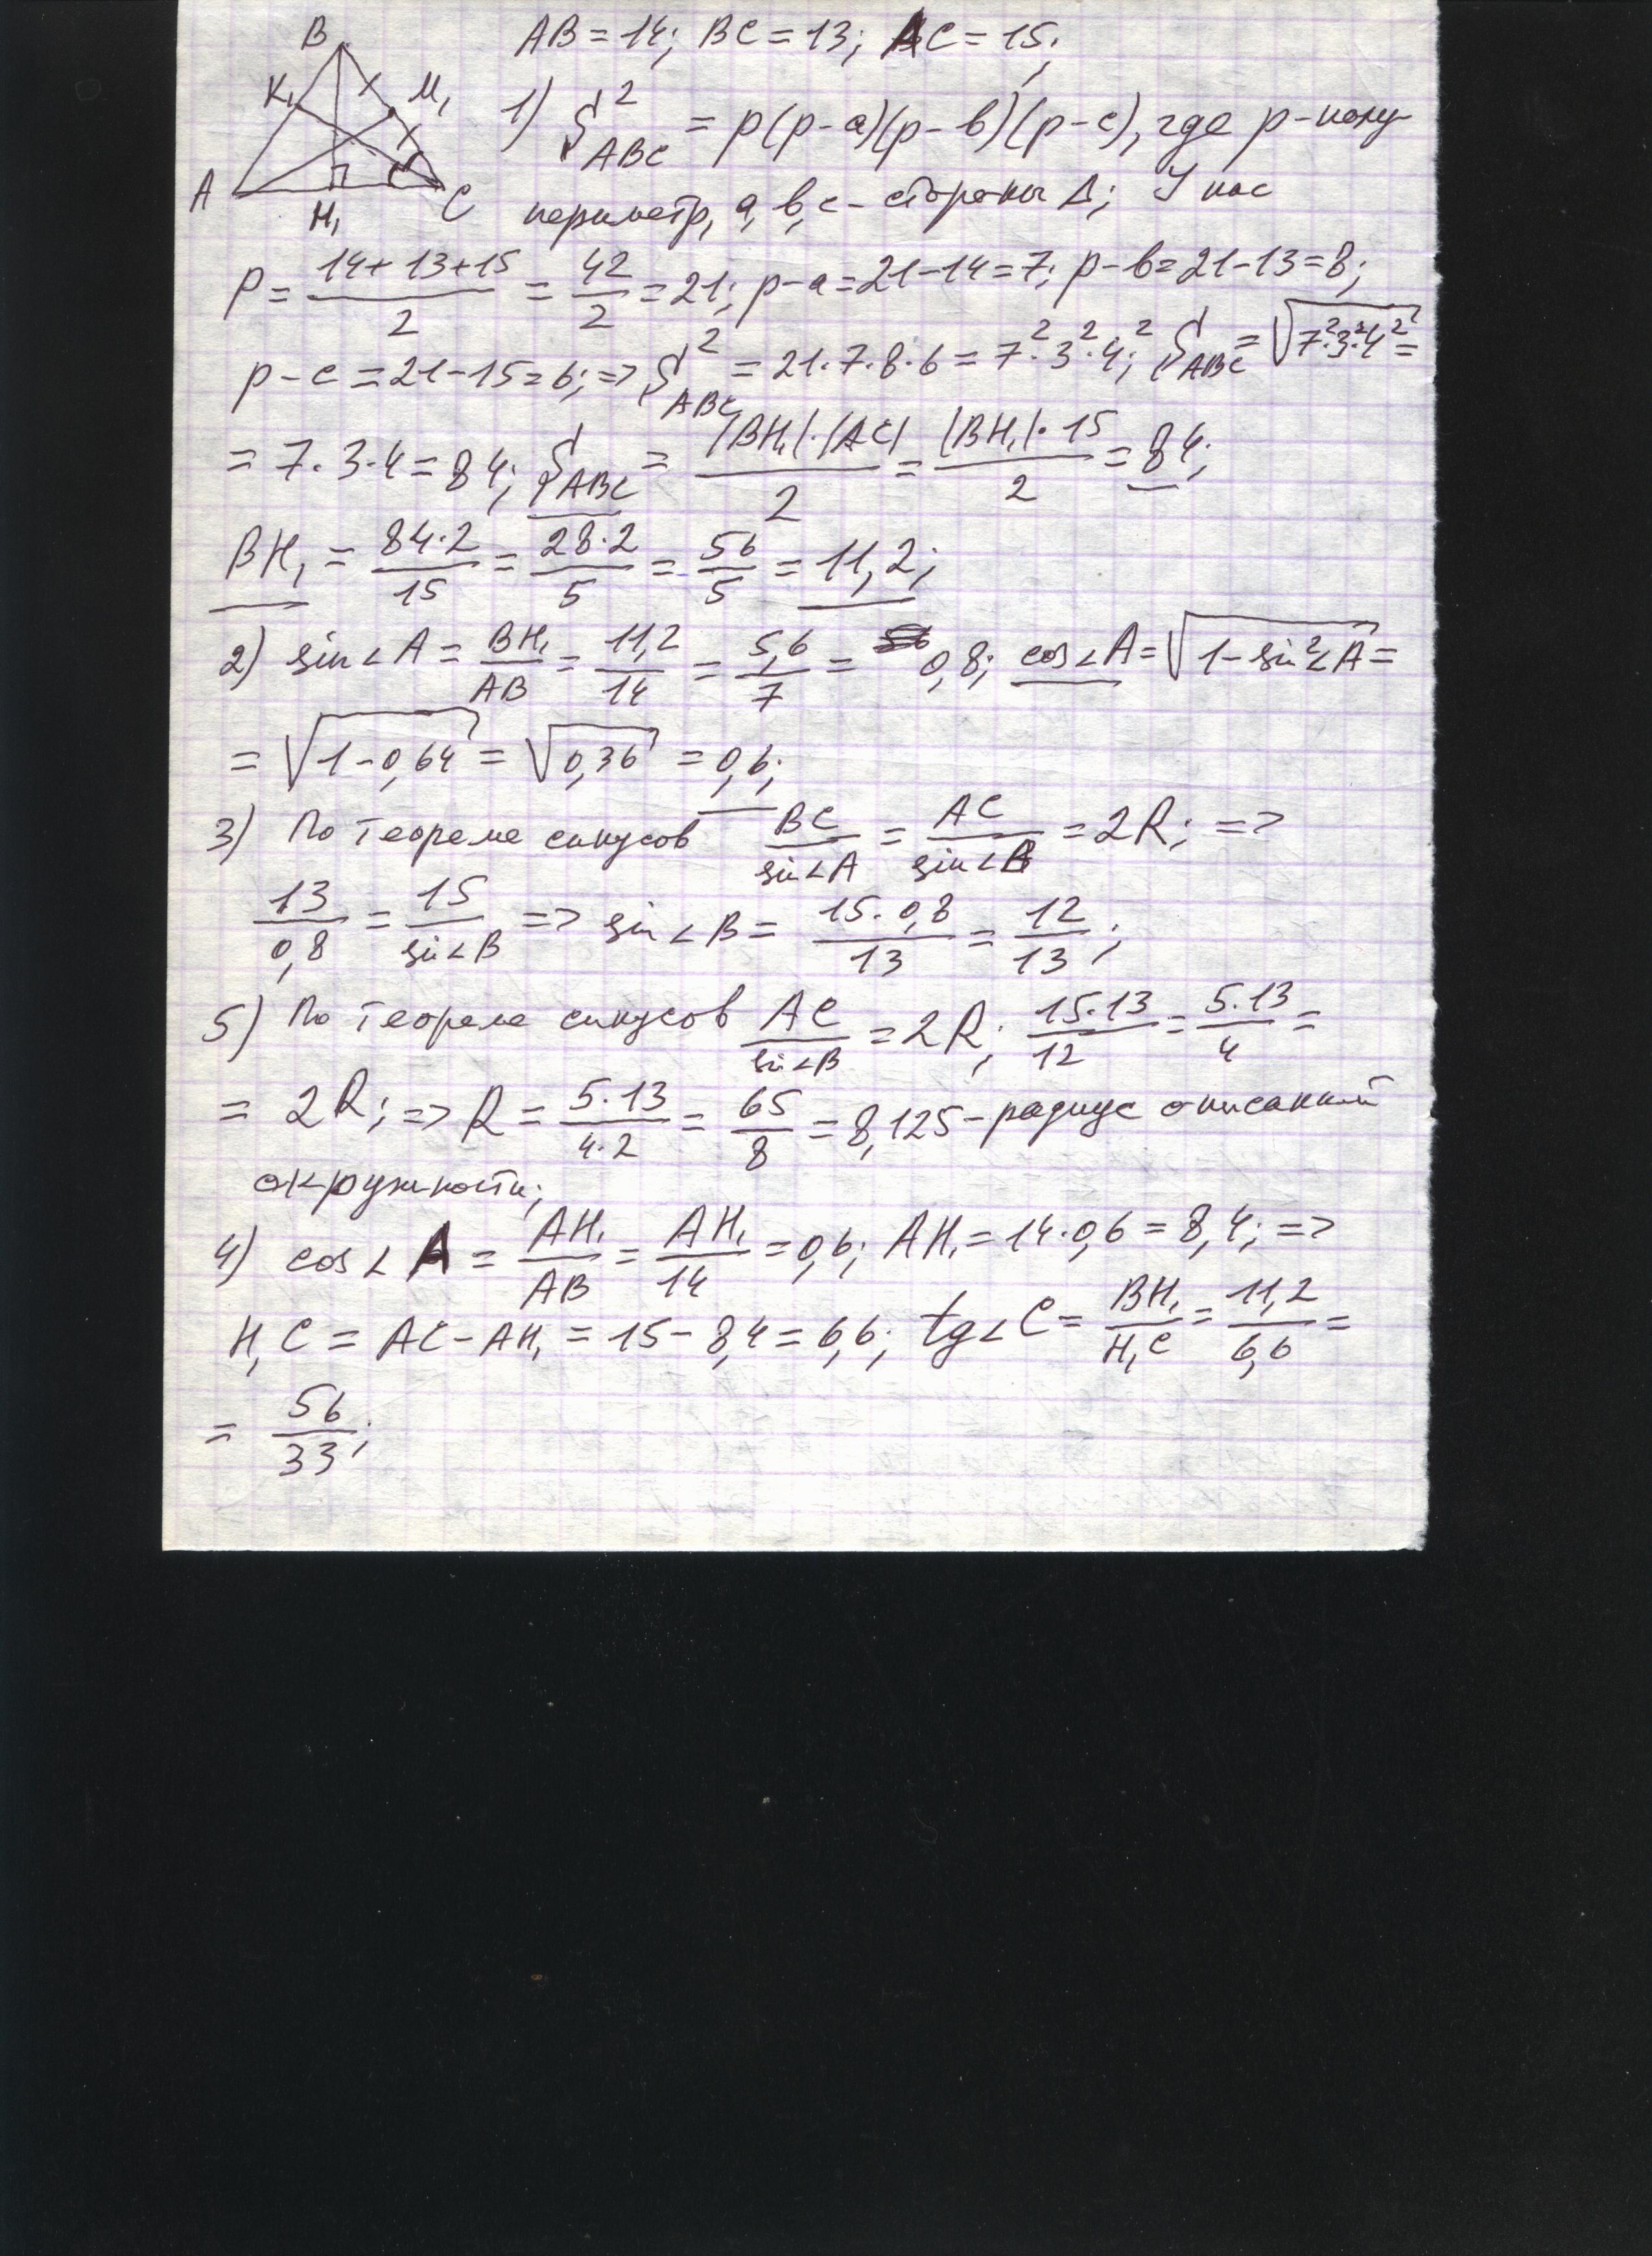 B
K₁
M₁
A
H₁
C
AB = 14; BC = 13; AC = 15;
1) S²_ABC = p(p-a)(p-b)(p-c), где p - полу-
периметр, a, b, c - стороны Δ; У нас
P = (14+13+15)/2 = 42/2 = 21; p-a = 21-14 = 7; p-b = 21-13 = 8;
p-c = 21-15 = 6; => S²_ABC = 21·7·8·6 = 7²·3²·4²; S_ABC = √(7²·3²·4²) =
= 7·3·4 = 84; S_ABC = |BH₁|·|AC|/2 = |BH₁|·15/2 = 84;
BH₁ = 84·2/15 = 28·2/5 = 56/5 = 11,2;
2) sin∠A = BH₁/AB = 11,2/14 = 5,6/7 = 0,8; cos∠A = √(1-sin²∠A) =
= √(1-0,64) = √0,36 = 0,6;
3) По теореме синусов BC/sin∠A = AC/sin∠B = 2R; =>
13/0,8 = 15/sin∠B => sin∠B = 15·0,8/13 = 12/13;
5) По теореме синусов AC/sin∠B = 2R; 15·13/12 = 5·13/4 =
= 2R; => R = 5·13/4·2 = 65/8 = 8,125 - радиус описанной
окружности;
4) cos∠A = AH₁/AB = AH₁/14 = 0,6; AH₁ = 14·0,6 = 8,4; =>
H₁C = AC - AH₁ = 15 - 8,4 = 6,6; tg∠C = BH₁/H₁C = 11,2/6,6 =
= 56/33;